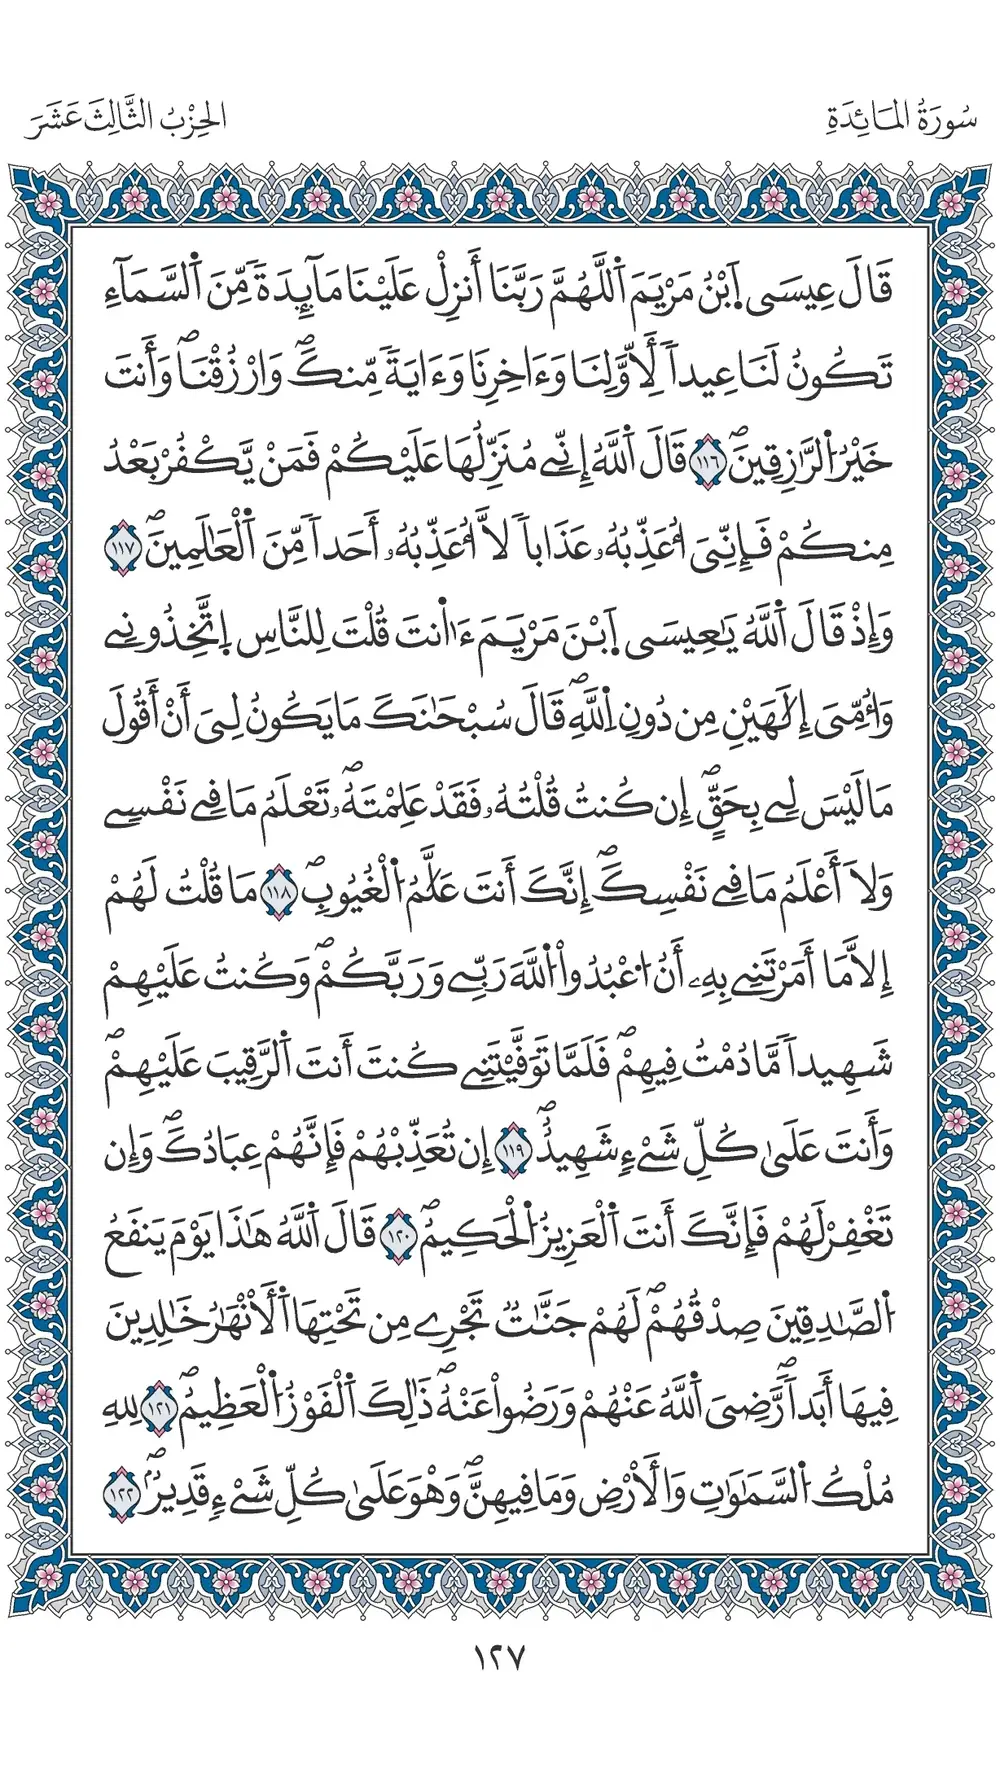 سُورَةُ المَائِدَةِ
الحِزْبُ الثَّالِثَ عَشَرَ
قَالَ عِيسَى اَبْنُ مَرْيَمَ اَللَّهُمَّ رَبَّنَا أَنزِلْ عَلَيْنَا مَآئِدَةً مِّنَ اَلسَّمَآءِ
تَكُونُ لَنَا عِيداً لِّأَوَّلِنَا وَءَاخِرِنَا وَءَايَةً مِّنكَۖ وَارْزُقْنَاۖ وَأَنتَ
خَيْرُ اُلرَّٰزِقِينَۖ ١١٦ قَالَ اَللَّهُ إِنِّے مُنَزِّلُهَا عَلَيْكُمْ فَمَنْ يَّكْفُرْ بَعْدُ
مِنكُمْ فَإِنِّيَ أُعَذِّبُهُۥ عَذَاباً لَّا أُعَذِّبُهُۥ أَحَداً مِّنَ اَلْعَٰلَمِينَۖ ١١٧
وَإِذْ قَالَ اَللَّهُ يَٰعِيسَى اَبْنَ مَرْيَمَ ءَا۬نتَ قُلْتَ لِلنَّاسِ اِتَّخِذُونِے
وَأُمِّيَ إِلَٰهَيْنِ مِن دُونِ اِللَّهِۖ قَالَ سُبْحَٰنَكَ مَا يَكُونُ لِيَ أَنْ أَقُولَ
مَا لَيْسَ لِے بِحَقٍّۖ إِن كُنتُ قُلْتُهُۥ فَقَدْ عَلِمْتَهُۥۖ تَعْلَمُ مَا فِے نَفْسِے
وَلَا أَعْلَمُ مَا فِے نَفْسِكَۖ إِنَّكَ أَنتَ عَلَّٰمُ اُلْغُيُوبِۖ ١١٨ مَا قُلْتُ لَهُمْ
إِلَّا مَا أَمَرْتَنِے بِهِۦ أَنُ اُعْبُدُواْ اُللَّهَ رَبِّے وَرَبَّكُمْۖ وَكُنتُ عَلَيْهِمْ
شَهِيداً مَّا دُمْتُ فِيهِمْۖ فَلَمَّا تَوَفَّيْتَنِے كُنتَ أَنتَ اَلرَّقِيبَ عَلَيْهِمْۖ
وَأَنتَ عَلَىٰ كُلِّ شَےْءٍ شَهِيدٌۖ ١١٩ إِن تُعَذِّبْهُمْ فَإِنَّهُمْ عِبَادُكَۖ وَإِن
تَغْفِرْ لَهُمْ فَإِنَّكَ أَنتَ اَلْعَزِيزُ اُلْحَكِيمُۖ ١٢٠ قَالَ اَللَّهُ هَٰذَا يَوْمَ يَنفَعُ
اُلصَّٰدِقِينَ صِدْقُهُمْۖ لَهُمْ جَنَّٰتٌ تَجْرِے مِن تَحْتِهَا اَلْأَنْهَٰرُ خَٰلِدِينَ
فِيهَا أَبَداًۖ رَّضِيَ اَللَّهُ عَنْهُمْ وَرَضُواْ عَنْهُۖ ذَٰلِكَ اَلْفَوْزُ اُلْعَظِيمُۖ ١٢١ لِلهِ
مُلْكُ اُلسَّمَٰوَٰتِ وَالْأَرْضِ وَمَا فِيهِنَّۖ وَهْوَ عَلَىٰ كُلِّ شَےْءٍ قَدِيرٌۖ ١٢٢
١٢٧